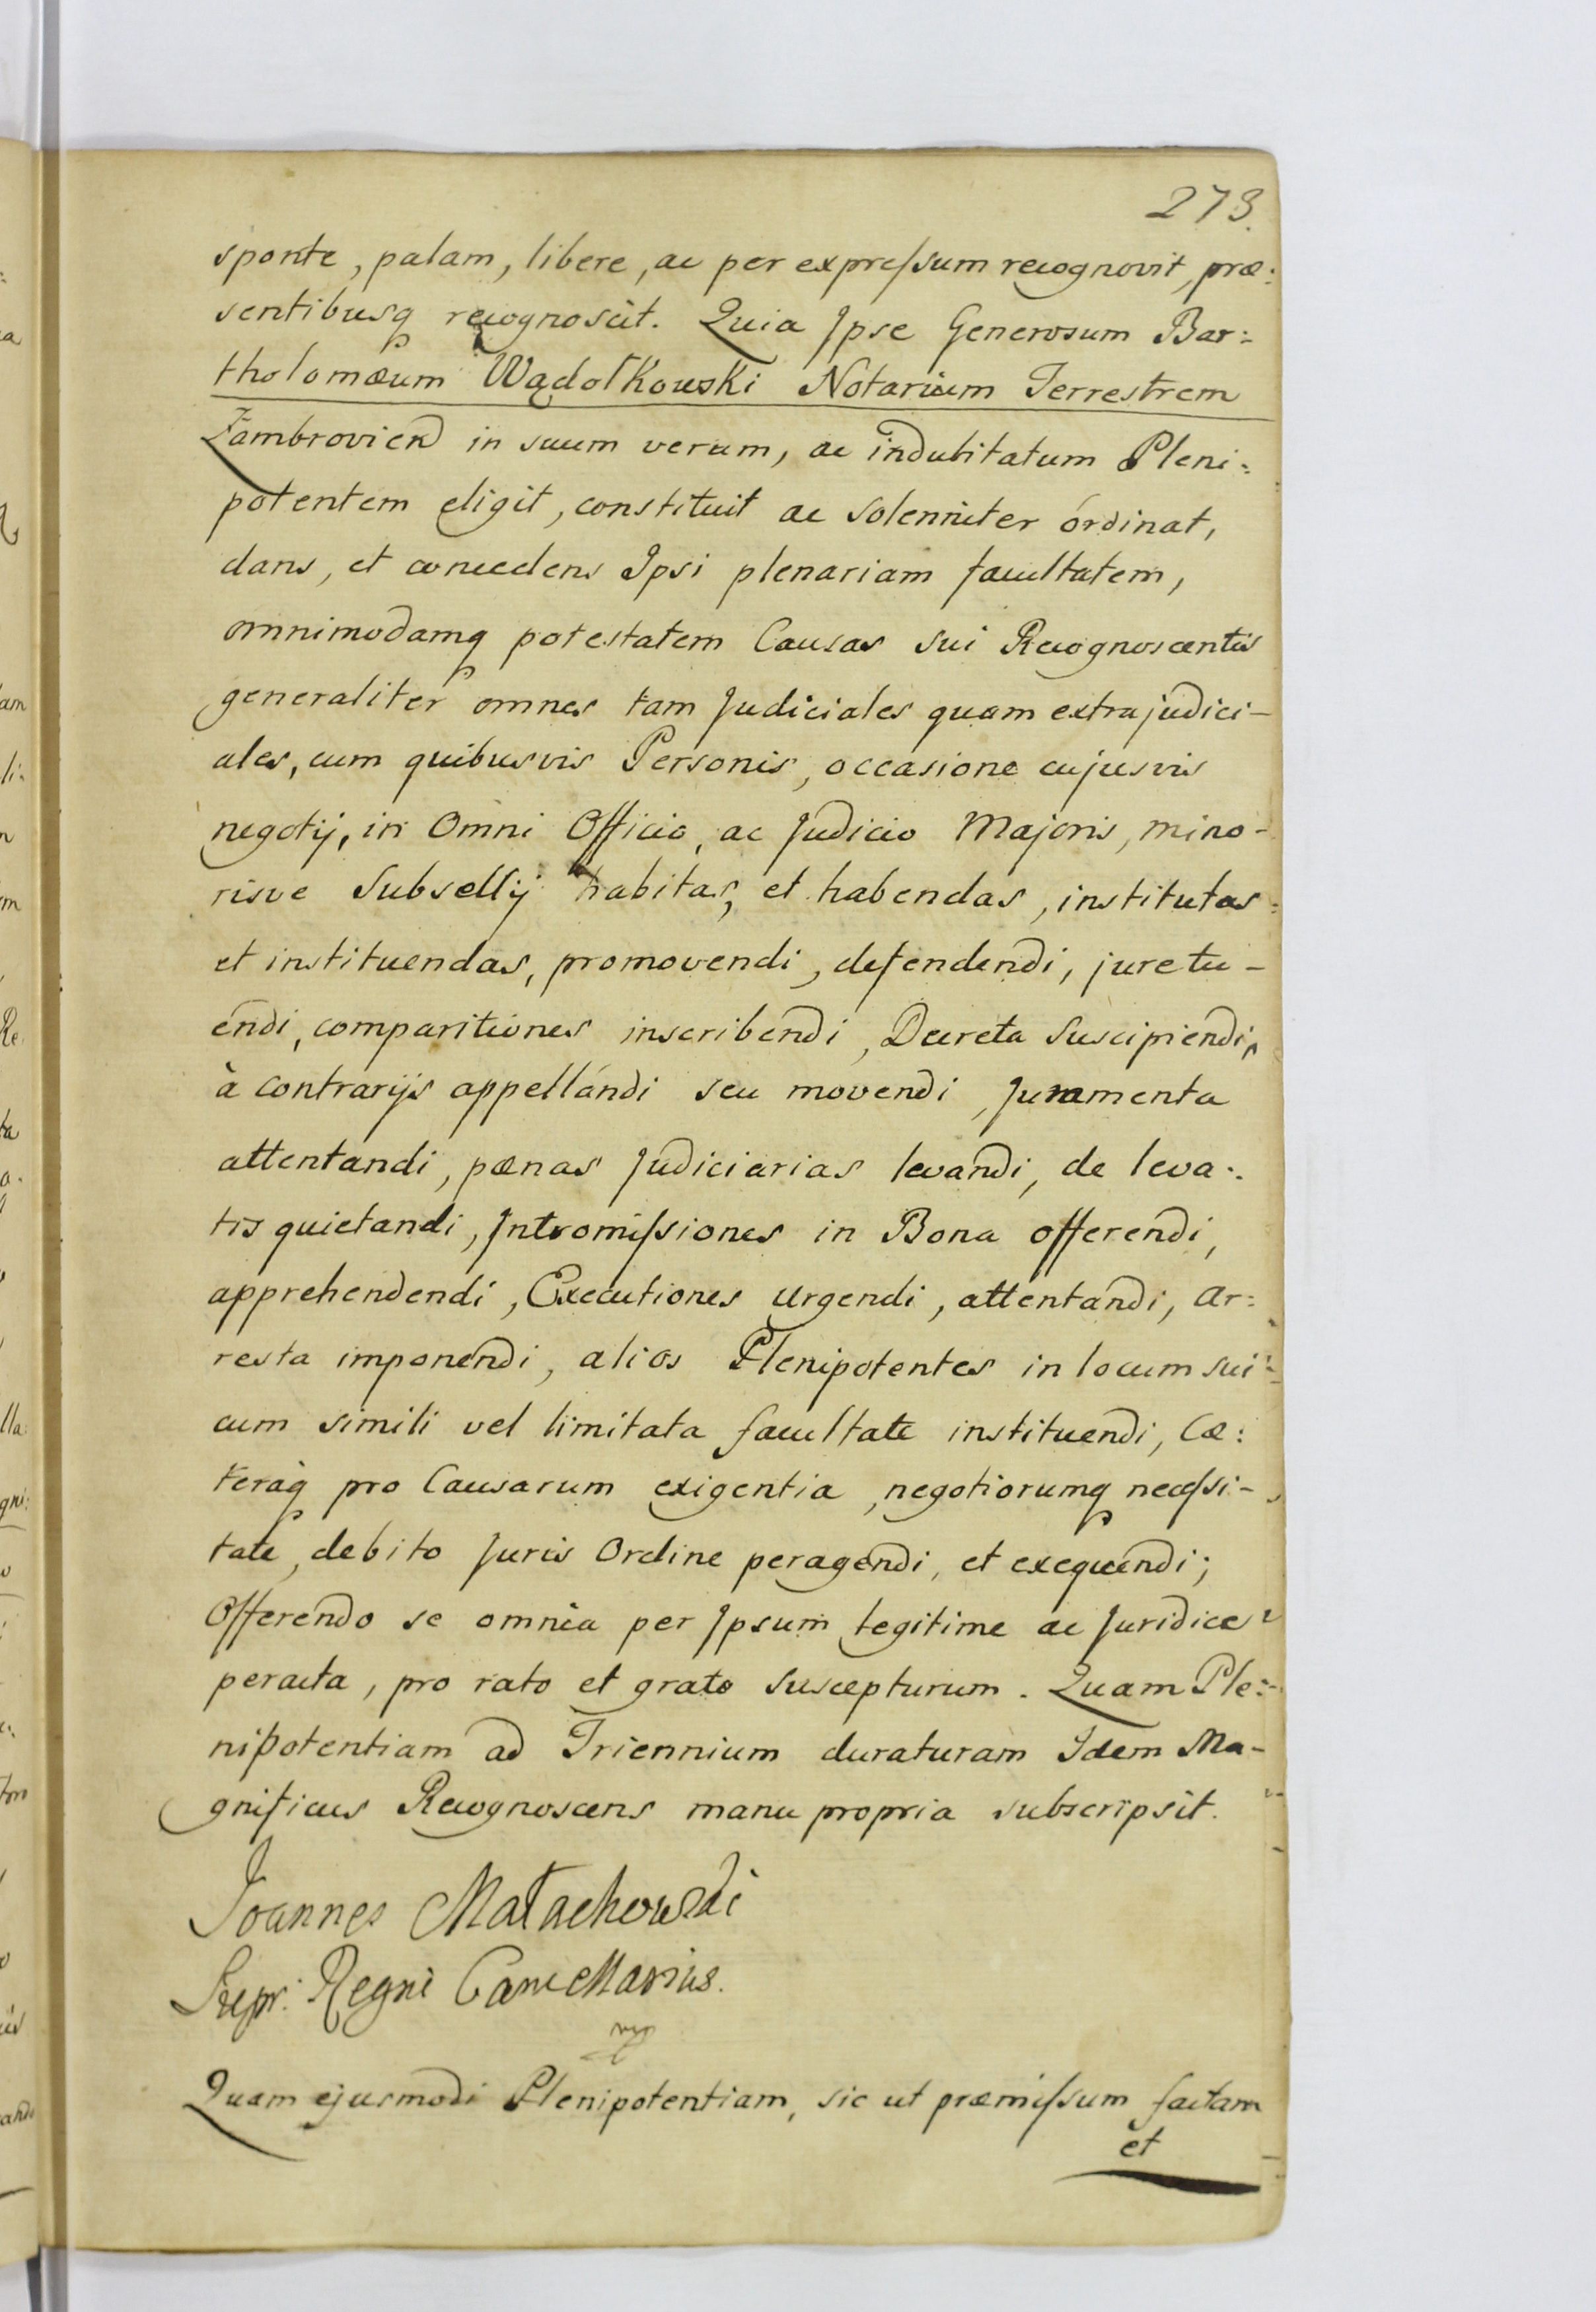 273.
sponte, palam, libere, ac per expressum recognovit, præ:
sentibusq recognoscit. Quia Ipse Generosum Bar:
tholomæum Wądołkowski Notarium Terrestrem
Zambrovien in suum verum, ac indubitatum Pleni:
potentem eligit, constituit ac solenniter órdinat,
dans, et concedens Ipsi plenariam facultatem,
omnimodamq potestatem Causas sui Recognoscentis
generaliter omnes tam Judiciales quam extrajudici-
ales, cum quibusvis Personis, occasione cujusvis
negotij, in Omni Officio, ac Judicio Majoris, mino-
risve Subsellij habitas, et habendas, institutas
et instituendas, promovendi, defendendi, jure tu-
endi, comparitiones inscribendi, Decreta suscipiendi,
à contrarijs appellándi seu movendi, Juramenta
attentandi, pænas Judiciarias levandi, de leva:
tis quietandi, Intromissiones in Bona offerendi,
apprehendendi, Executiones urgendi, attentandi, Ar:
resta imponendi, alios Plenipotentes in locum sui
cum simili vel limitata facultate instituendi, Cæ:
teraq pro Causarum exigentia, negotiorumq necessi-
tate, debito Juris Ordine peragendi, et exequendi;
Offerendo se omnia per Ipsum legitime ac Juridice
peracta, pro rato et grato suscepturum. Quam Ple:
nipotentiam ad Triennium duraturam Idem Ma-
gnificus Recognoscens manu propria subscripsit.
Joannes Małachowski
Supr: Regni Cancellarius.
mp
Quam ejusmodi Plenipotentiam, sic ut præmissum factam
et